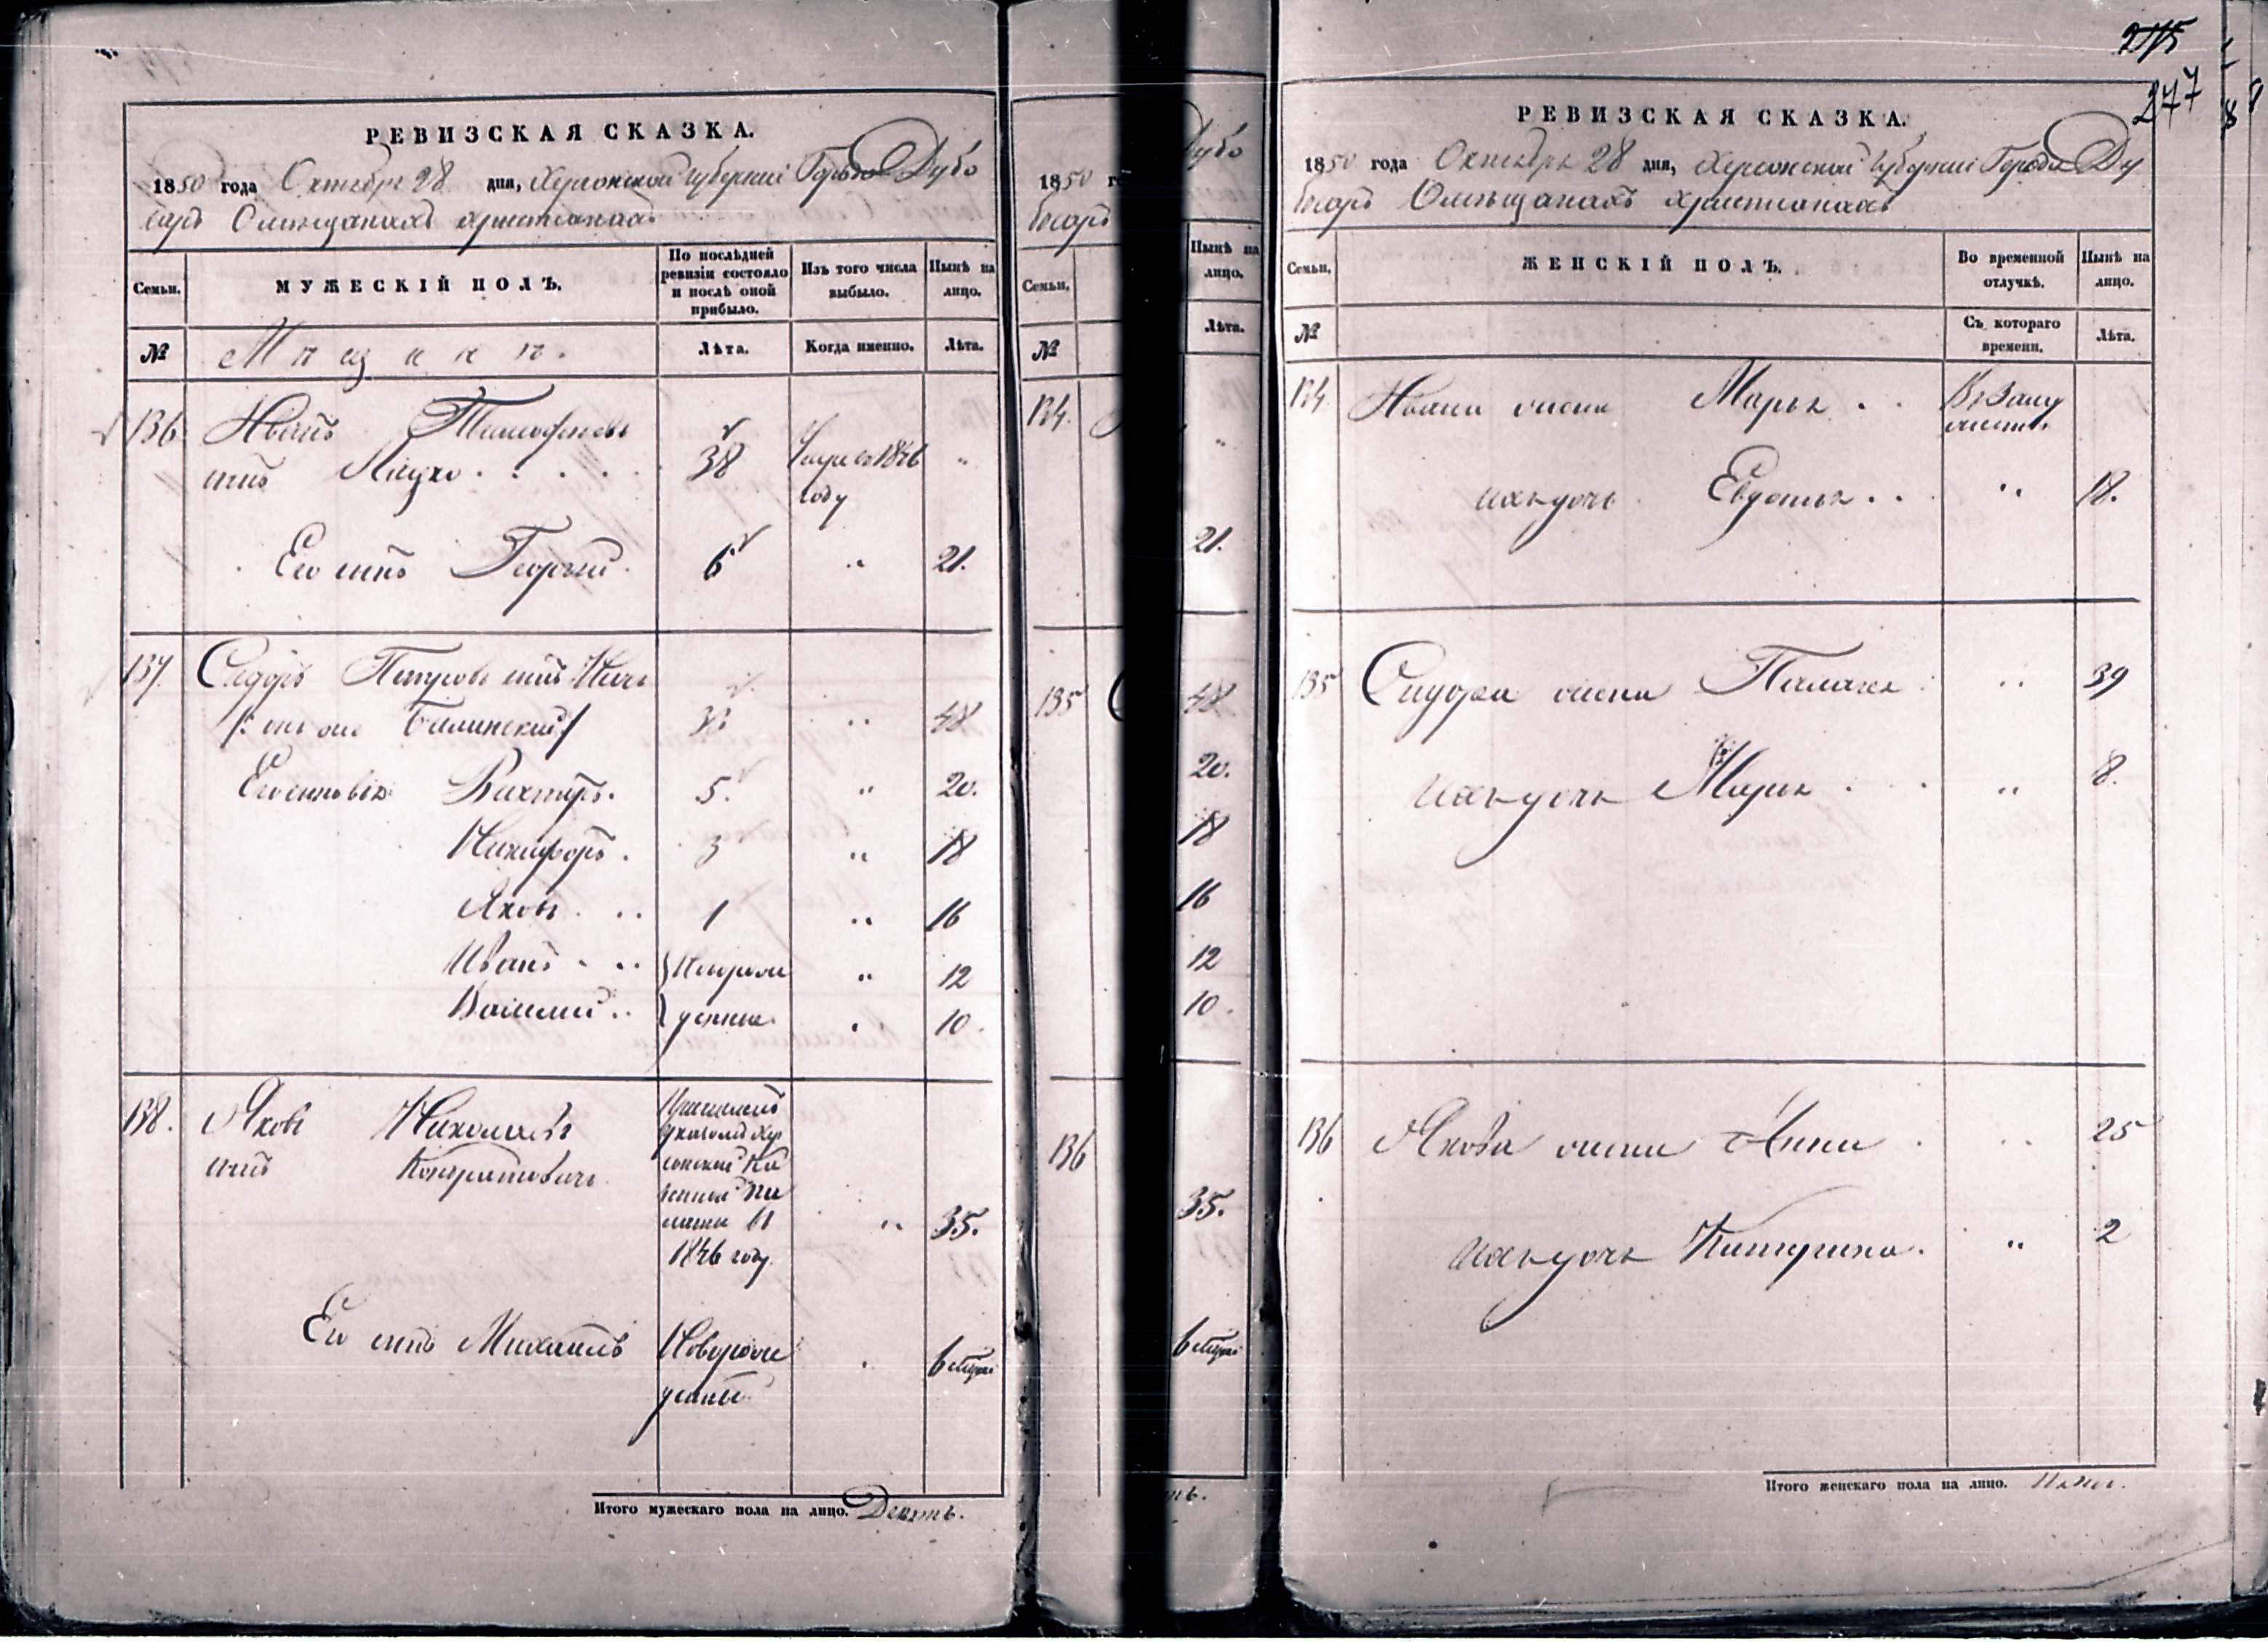 РЕВИЗСКАЯ СКАЗКА.
1850 года Октября 28 дня, Херсонской губернии Города Дубо
саръ О мѣщанахъ христианахъ
Семьи.
МУЖЕСКІЙ ПОЛЪ.
По послѣдней
ревизіи состояло
и послѣ оной
прибыло.
Изъ того числа
выбыло.
Нынѣ на
лицо.
№
Мѣщане.
Лѣта.
Когда именно.
Лѣта.
136 Иванъ Тимофеевъ
сынъ 38 1846 "
году
Его сынъ Георгій 6 " 21.
137. Сидоръ Петровъ сынъ
/: онъ же 48
Его сыновья 5. " 20.
Никифоръ. 3 " 18
Яковъ . .. 1 " 16
Иванъ . .. } Новорож " 12
Василий .. } денные " 10.
138. Яковъ Николаевъ Причисленъ
сынъ Кондратовичъ указомъ Хер
сонской Ка
зенной Па
латы въ " 35.
1846 году
Его сынъ Михаилъ Новорож
денный
Итого мужескаго пола на лицо. Девять.
1850 г
Дубо
Семьи.
№
Нынѣ на
лицо.
Лѣта.
134.
21.
135
48
20.
18
16
12
10.
136
35.
275
277
РЕВИЗСКАЯ СКАЗКА.
1850 года Октября 28 дня, Херсонской губернии Города Ду
босаръ О мѣщанахъ христианахъ
Семьи.
ЖЕНСКІЙ ПОЛЪ.
Во временной
отлучкѣ.
Нынѣ на
лицо.
№
Съ котораго
времени.
Лѣта.
134 Ивана жена Марья . . В заму
жестве.
ихъ дочь Евдокья . . " 18.
135 Сидора жена Пелагея " 39
ихъ дочь Марья . " 8.
136 Якова жена Анна . " 25
ихъ дочь Катерина. " 2
Итого женскаго пола на лицо.